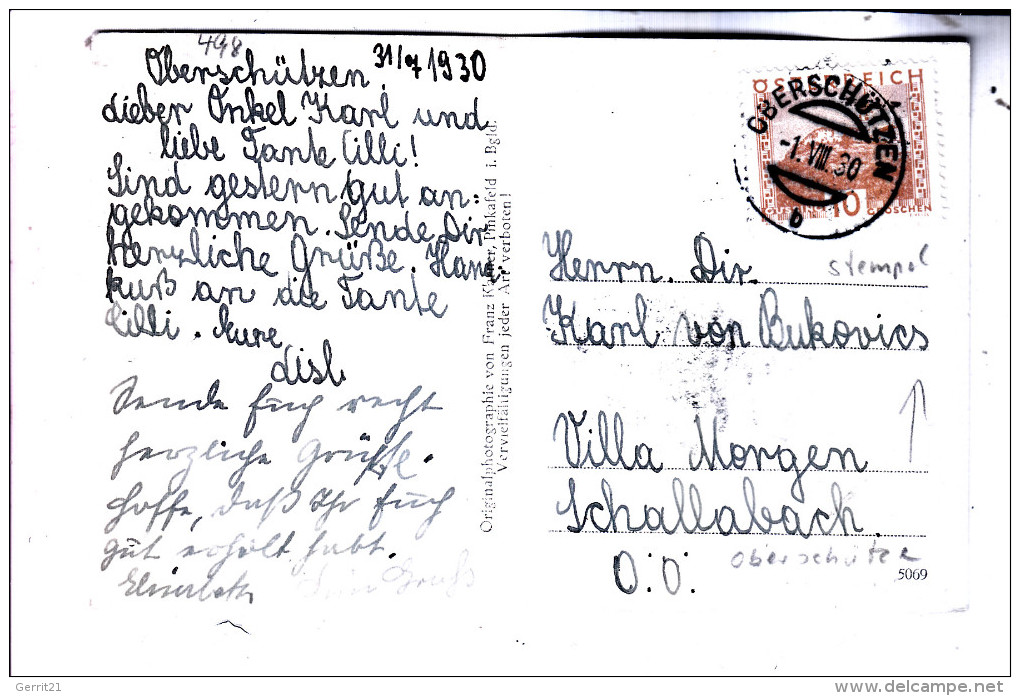 498
Oberschützen, 31/7 1930
Lieber Onkel Karl und
liebe Tante Cilli!
Sind gestern gut an-
gekommen. Sende Dir
herzliche Grüße. Hand-
kuß an die Tante
Cilli. Eure
Lisl.
Sende Euch recht
herzliche Grüße.
Hoffe, daß Ihr Euch
gut erholt habt.
Elisabeth
Originalphotographie von Franz Pinkafeld i. Bgld.
Vervielfältigungen jeder Art verboten!
ÖSTERREICH
OBERSCHÜTZEN
-1.VIII.30
b
10 GROSCHEN
stempel
Herrn. Dir.
Karl von Bukovics
Villa Morgen
Schallabach
O.Ö.
Oberschütze
5069
Gerrit21
www.delcampe.net